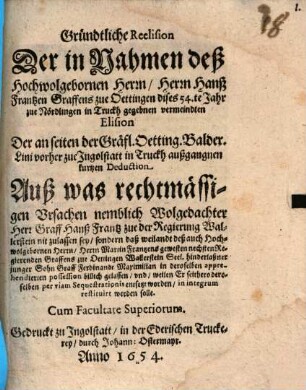 1.
78
Gründtliche Reelision
Der in Nahmen deß
Hochwolgebornen Herrn/ Herrn Hanß
Frantzen Graffens zue Oettingen dises 54.te Jahr
zue Nördlingen in Truckh gegebnen vermeindten
Elision
Der an seiten der Gräfl. Oetting. Balder.
Lini vorher zue Ingolstatt in Truckh außgangnen
kurtzen Deduction.
Auß was rechtmässi-
gen Vrsachen nemblich Wolgedachter
Herr Graff Hanß Frantz zue der Regierung Wal-
lerstein nit zulassen sey/ sondern daß weilandt deß auch Hoch-
wolgebornen Herrn/ Herrn Martin Frantzens gewesten nechsten Re-
gierenden Graffens zue Oettingen Wallerstein Seel. hinderlaßner
junger Sohn Graff Ferdinandt Maximilian in deroselben appre-
hendierten possession billich gelassen/ vnd/ weilen Er seithero dero-
selben per viam Sequestrationis entsetzt worden/ in integrum
restituirt werden solle.
Cum Facultate Superiorum.
Gedruckt zu Ingolstatt/ in der Ederischen Trucke-
rey/ durch Johann: Ostermayr.
Anno 1654.